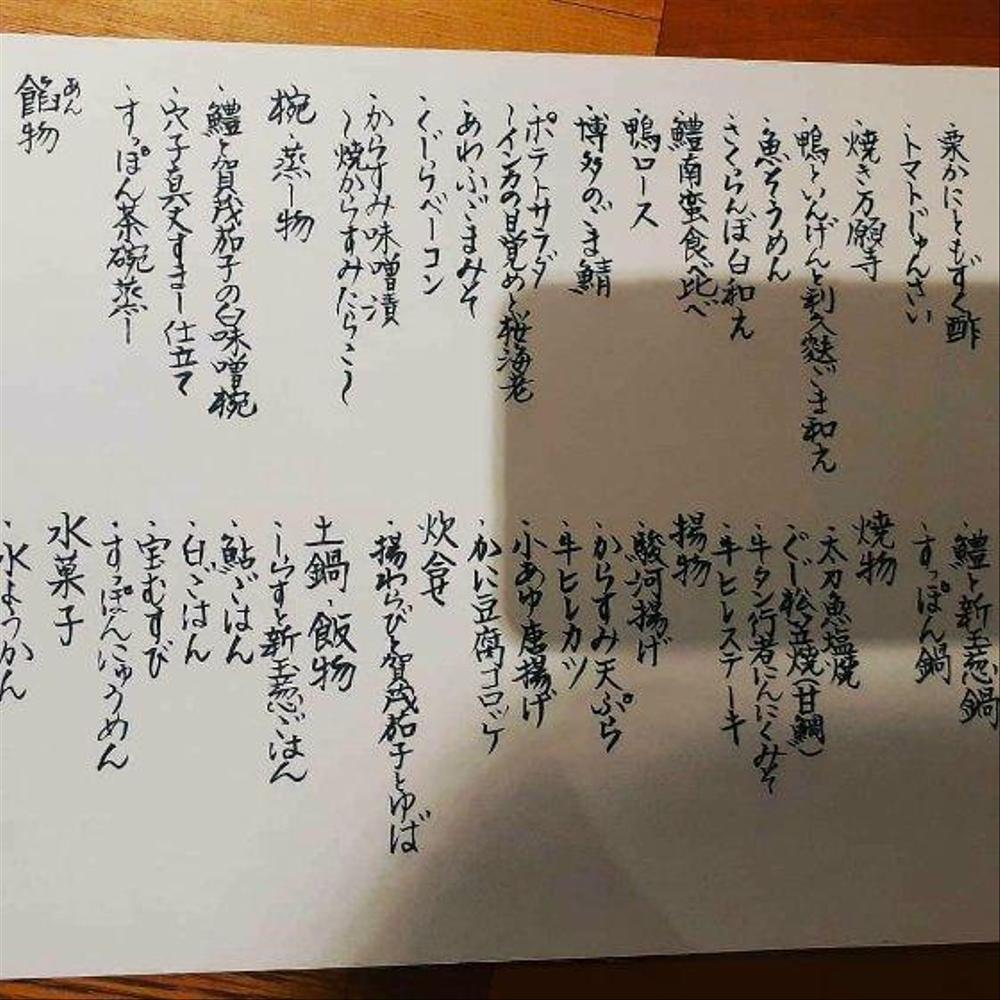 ・栗かにともずく酢
・トマトじゅんさい
・焼き万願寺
・鴨といんげんと利久麸ごま和え
・魚そうめん
・さくらんぼ白和え
・鱧南蛮食べ比べ
・鴨ロース
・博多のごま鯖
・ポテトサラダ
〜インカの目覚めと桜海老
・あわふごまみそ
・くじらベーコン
・からすみ味噌漬
〜焼からすみたらこ〜
椀・蒸し物
・鱧と賀茂茄子の白味噌椀
・穴子真丈すまし仕立て
・すっぽん茶碗蒸し
餡物
あん
・鱧と新玉葱鍋
・すっぽん鍋
焼物
・太刀魚塩焼
・ぐじ松笠焼(甘鯛)
・牛タン行者にんにくみそ
・牛ヒレステーキ
揚物
・駿河揚げ
・からすみ天ぷら
・牛ヒレカツ
・小あゆ唐揚げ
・かに豆腐コロッケ
炊合せ
・揚わらびと賀茂茄子とゆば
土鍋・飯物
・しらすと新玉葱ごはん
・鮎ごはん
・白ごはん
・宝むすび
・すっぽんにゅうめん
水菓子
・水ようかん